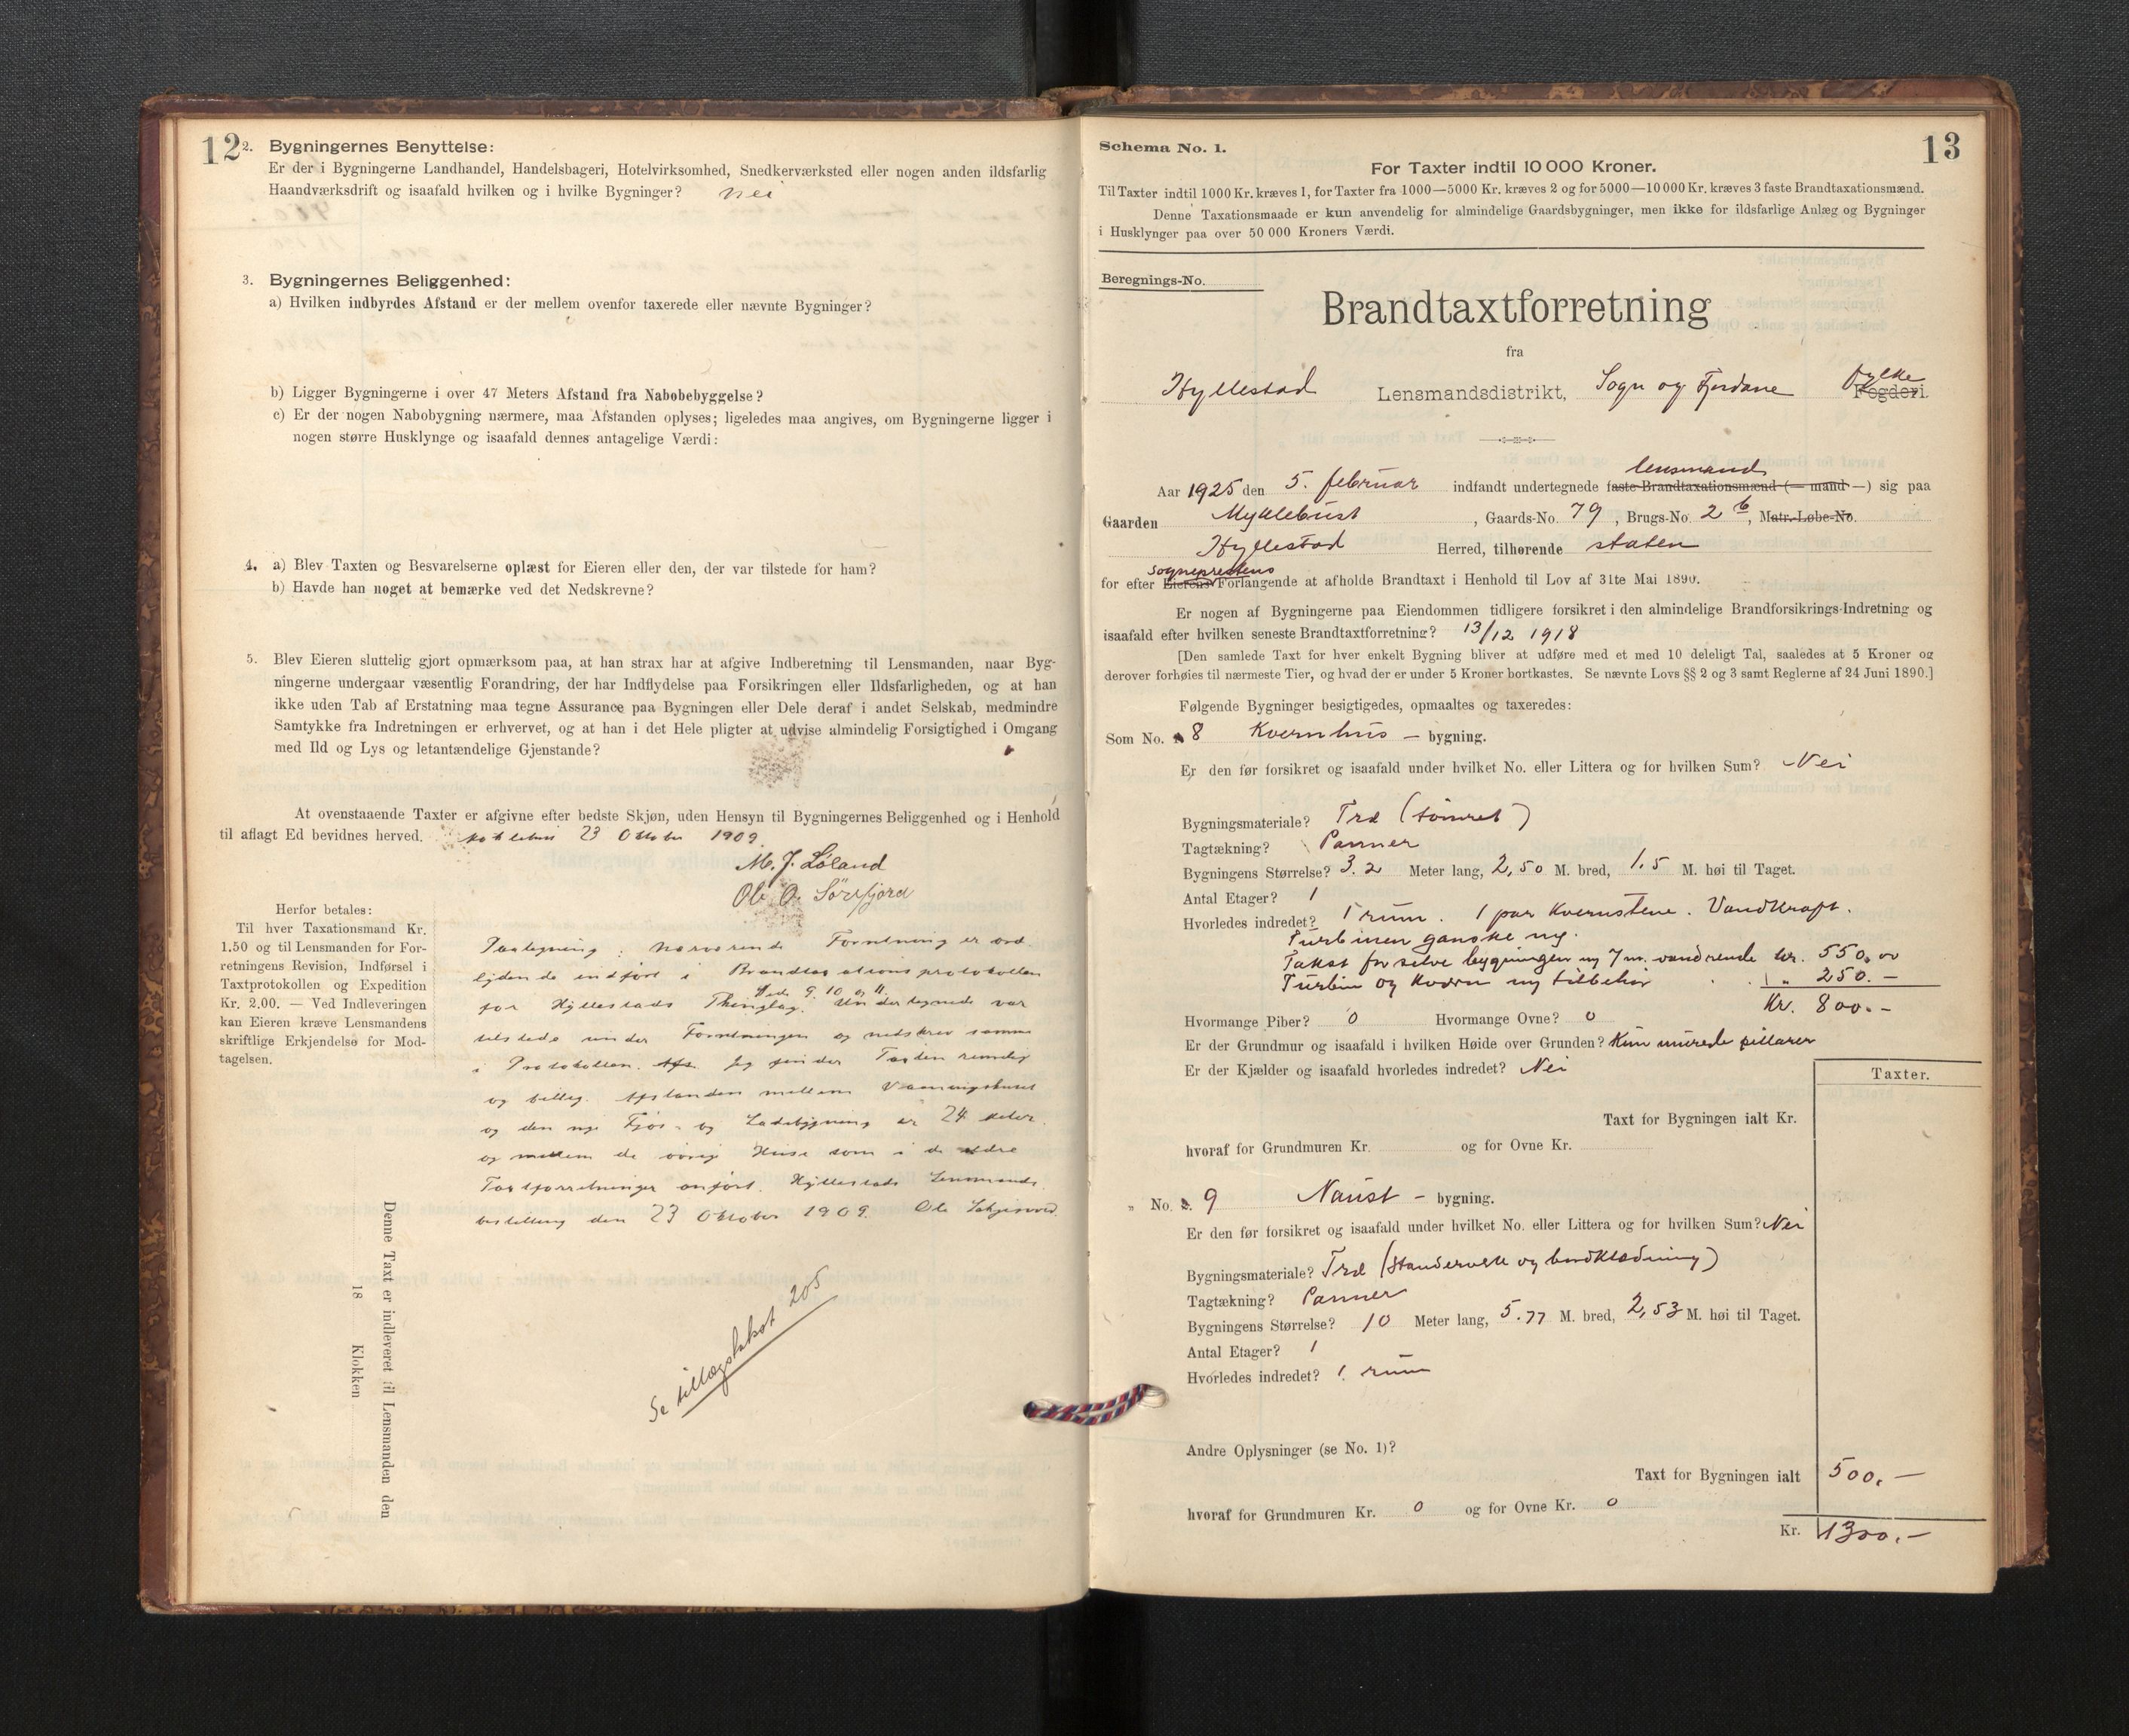 12
2. Bygningernes Benyttelse:
Er der i Bygningerne Landhandel, Handelsbageri, Hotelvirksomhed, Snedkerværksted eller nogen anden ildsfarlig
Haandværksdrift og isaafald hvilken og i hvilke Bygninger? nei
3. Bygningernes Beliggenhed:
a) Hvilken indbyrdes Afstand er der mellem ovenfor taxerede eller nævnte Bygninger?
b) Ligger Bygningerne i over 47 Meters Afstand fra Nabobebyggelse?
c) Er der nogen Nabobygning nærmere, maa Afstanden oplyses; ligeledes maa angives, om Bygningerne ligger i
nogen større Husklynge og isaafald dennes antagelige Værdi:
4. a) Blev Taxten og Besvarelserne oplæst for Eieren eller den, der var tilstede for ham?
b) Havde han noget at bemærke ved det Nedskrevne?
5. Blev Eieren sluttelig gjort opmærksom paa, at han strax har at afgive Indberetning til Lensmanden, naar Byg-
ningerne undergaar væsentlig Forandring, der har Indflydelse paa Forsikringen eller Ildsfarligheden, og at han
ikke uden Tab af Erstatning maa tegne Assurance paa Bygningen eller Dele deraf i andet Selskab, medmindre
Samtykke fra Indretningen er erhvervet, og at han i det Hele pligter at udvise almindelig Forsigtighed i Omgang
med Ild og Lys og letantændelige Gjenstande?
At ovenstaaende Taxter er afgivne efter bedste Skjøn, uden Hensyn til Bygningernes Beliggenhed og i Henhold
til aflagt Ed bevidnes herved. 23 Oktober 1909.
M. J. Løland
Ole O. Sørefjord
Herfor betales:
Til hver Taxationsmand Kr.
1.50 og til Lensmanden for For-
retningens Revision, Indførsel i
Taxtprotokollen og Expedition
Kr. 2.00. — Ved Indleveringen
kan Eieren kræve Lensmandens
skriftlige Erkjendelse for Mod-
tagelsen.
Paategning: Nærværende Forretning er ord-
lydende indført i Brandtaxationsprotokollen
for Hyllestads Thinglag. Side 9. 10 og 11. Undertegnede var
tilstede under Forretningen og nedskrev samme
i Protokollen. Afs. Jeg finder Taxten rimelig
og billig. Afstanden mellem Vaaningshuset
og den nye Fjøs- og Ladebygning er 24 meter.
og mellem de øvrige Huse som i de ældre
Taxtforretninger anført. Hyllestads Lensmands-
bestilling den 23 Oktober 1909. Ole
Se tillægstakst 205
Denne Taxt er indleveret til Lensmanden den
18 Klokken
13
Schema No. 1.
For Taxter indtil 10 000 Kroner.
Til Taxter indtil 1000 Kr. kræves 1, for Taxter fra 1000—5000 Kr. kræves 2 og for 5000—10 000 Kr. kræves 3 faste Brandtaxationsmænd.
Denne Taxationsmaade er kun anvendelig for almindelige Gaardsbygninger, men ikke for ildsfarlige Anlæg og Bygninger
i Husklynger paa over 50 000 Kroners Værdi.
Beregnings-No.
Brandtaxtforretning
fra
Hyllestad Lensmandsdistrikt, Sogn og Fjordane Fogderi. fylke
Aar 1925 den 5. februar indfandt undertegnede faste Brandtaxationsmænd (— mand —) lensmand sig paa
Gaarden Myklebust, Gaards-No. 79, Brugs-No. 2 b, Matr.-Løbe-No.
Hyllestad Herred, tilhørende staten
for efter Eierens sogneprestens Forlangende at afholde Brandtaxt i Henhold til Lov af 31te Mai 1890.
Er nogen af Bygningerne paa Eiendommen tidligere forsikret i den almindelige Brandforsikrings-Indretning og
isaafald efter hvilken seneste Brandtaxtforretning? 13/12 1918
[Den samlede Taxt for hver enkelt Bygning bliver at udføre med et med 10 deleligt Tal, saaledes at 5 Kroner og
derover forhøies til nærmeste Tier, og hvad der er under 5 Kroner bortkastes. Se nævnte Lovs §§ 2 og 3 samt Reglerne af 24 Juni 1890.]
Følgende Bygninger besigtigedes, opmaaltes og taxeredes:
Som No. 8 Kvernhus — bygning.
Er den før forsikret og isaafald under hvilket No. eller Littera og for hvilken Sum? Nei
Bygningsmateriale? Træ (tømret)
Tagtækning? Panner
Bygningens Størrelse? 3.2 Meter lang, 2,50 M. bred, 1.5 M. høi til Taget.
Antal Etager? 1
Hvorledes indredet? 1 rum. 1 par Kvernstene. Vandkraft.
Turbinen ganske ny.
Takst for selve bygningen og 7 m. vandrende kr. 550,00
Turbin og Kvern og tilbehør „ 250.—
Kr. 800.—
Hvormange Piber? 0 Hvormange Ovne? 0
Er der Grundmur og isaafald i hvilken Høide over Grunden? Kun murede pillarer
Er der Kjælder og isaafald hvorledes indredet? Nei
Taxter.
Taxt for Bygningen ialt Kr.
hvoraf for Grundmuren Kr. og for Ovne Kr.
„ No. 2. 9 Naust — bygning.
Er den før forsikret og isaafald under hvilket No. eller Littera og for hvilken Sum? Nei
Bygningsmateriale? Træ (Standerverk og bordklædning)
Tagtækning? Panner
Bygningens Størrelse? 10 Meter lang, 5.77 M. bred, 2,53 M. høi til Taget.
Antal Etager? 1
Hvorledes indredet? 1. rum
Andre Oplysninger (se No. 1)?
Taxt for Bygningen ialt 500.—
hvoraf for Grundmuren Kr. 0 og for Ovne Kr. 0
Kr. 1300.—